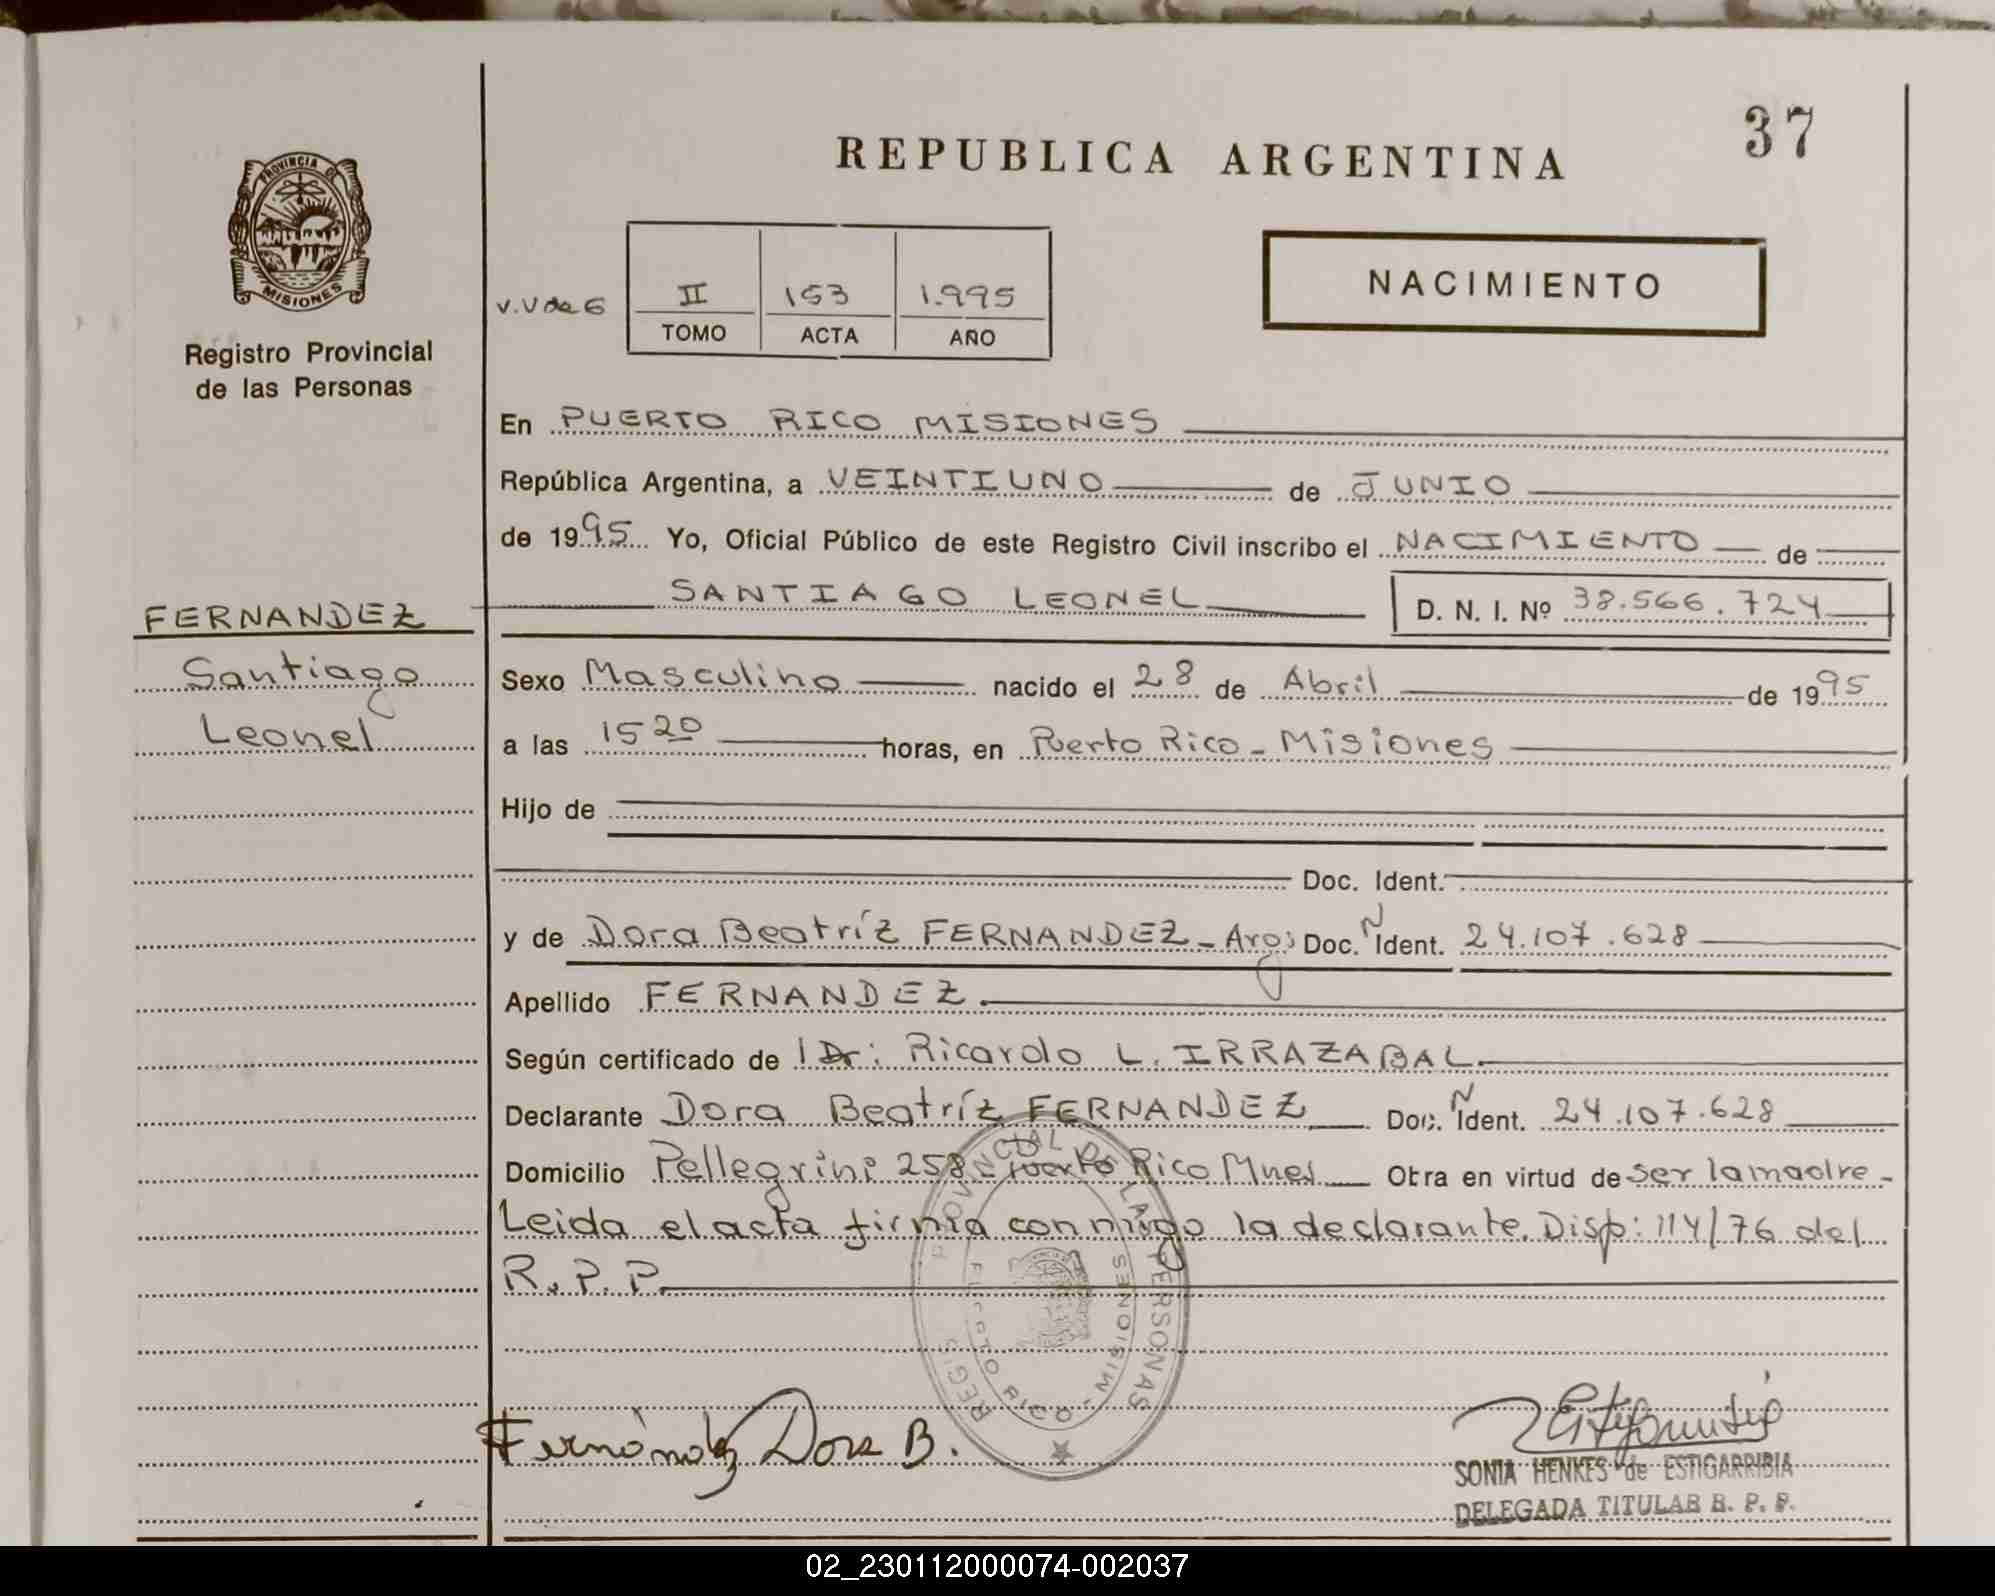 37
REPUBLICA ARGENTINA
PROVINCIA DE
MISIONES
Registro Provincial
de las Personas
NACIMIENTO
v.v de 6
II 153 1.995
TOMO ACTA AÑO
En PUERTO RICO MISIONES
República Argentina, a VEINTIUNO de JUNIO
de 1995 Yo, Oficial Público de este Registro Civil inscribo el NACIMIENTO de
SANTIAGO LEONEL D. N. I. Nº 38.566.724
FERNANDEZ
Santiago
Leonel
Sexo Masculino nacido el 28 de Abril de 1995
a las 15 20 horas, en Puerto Rico - Misiones
Hijo de
Doc. Ident.
y de Dora Beatríz FERNANDEZ - Arg; Doc. N Ident. 24.107.628
Apellido FERNANDEZ.
Según certificado de Dr: Ricardo L. IRRAZABAL.
Declarante Dora Beatríz FERNANDEZ Doc. N Ident. 24.107.628
Domicilio Pellegrini 258 - Puerto Rico Mnes Otra en virtud de ser la madre -
Leida el acta firma conmigo la declarante. Disp: 114/76 del
R.P.P.
REGISTRO PROVINCIAL DE LAS PERSONAS
PUERTO RICO - MISIONES
Fernández Dora B.
SONIA HENKES de ESTIGARRIBIA
DELEGADA TITULAR R. P. P.
02_230112000074-002037